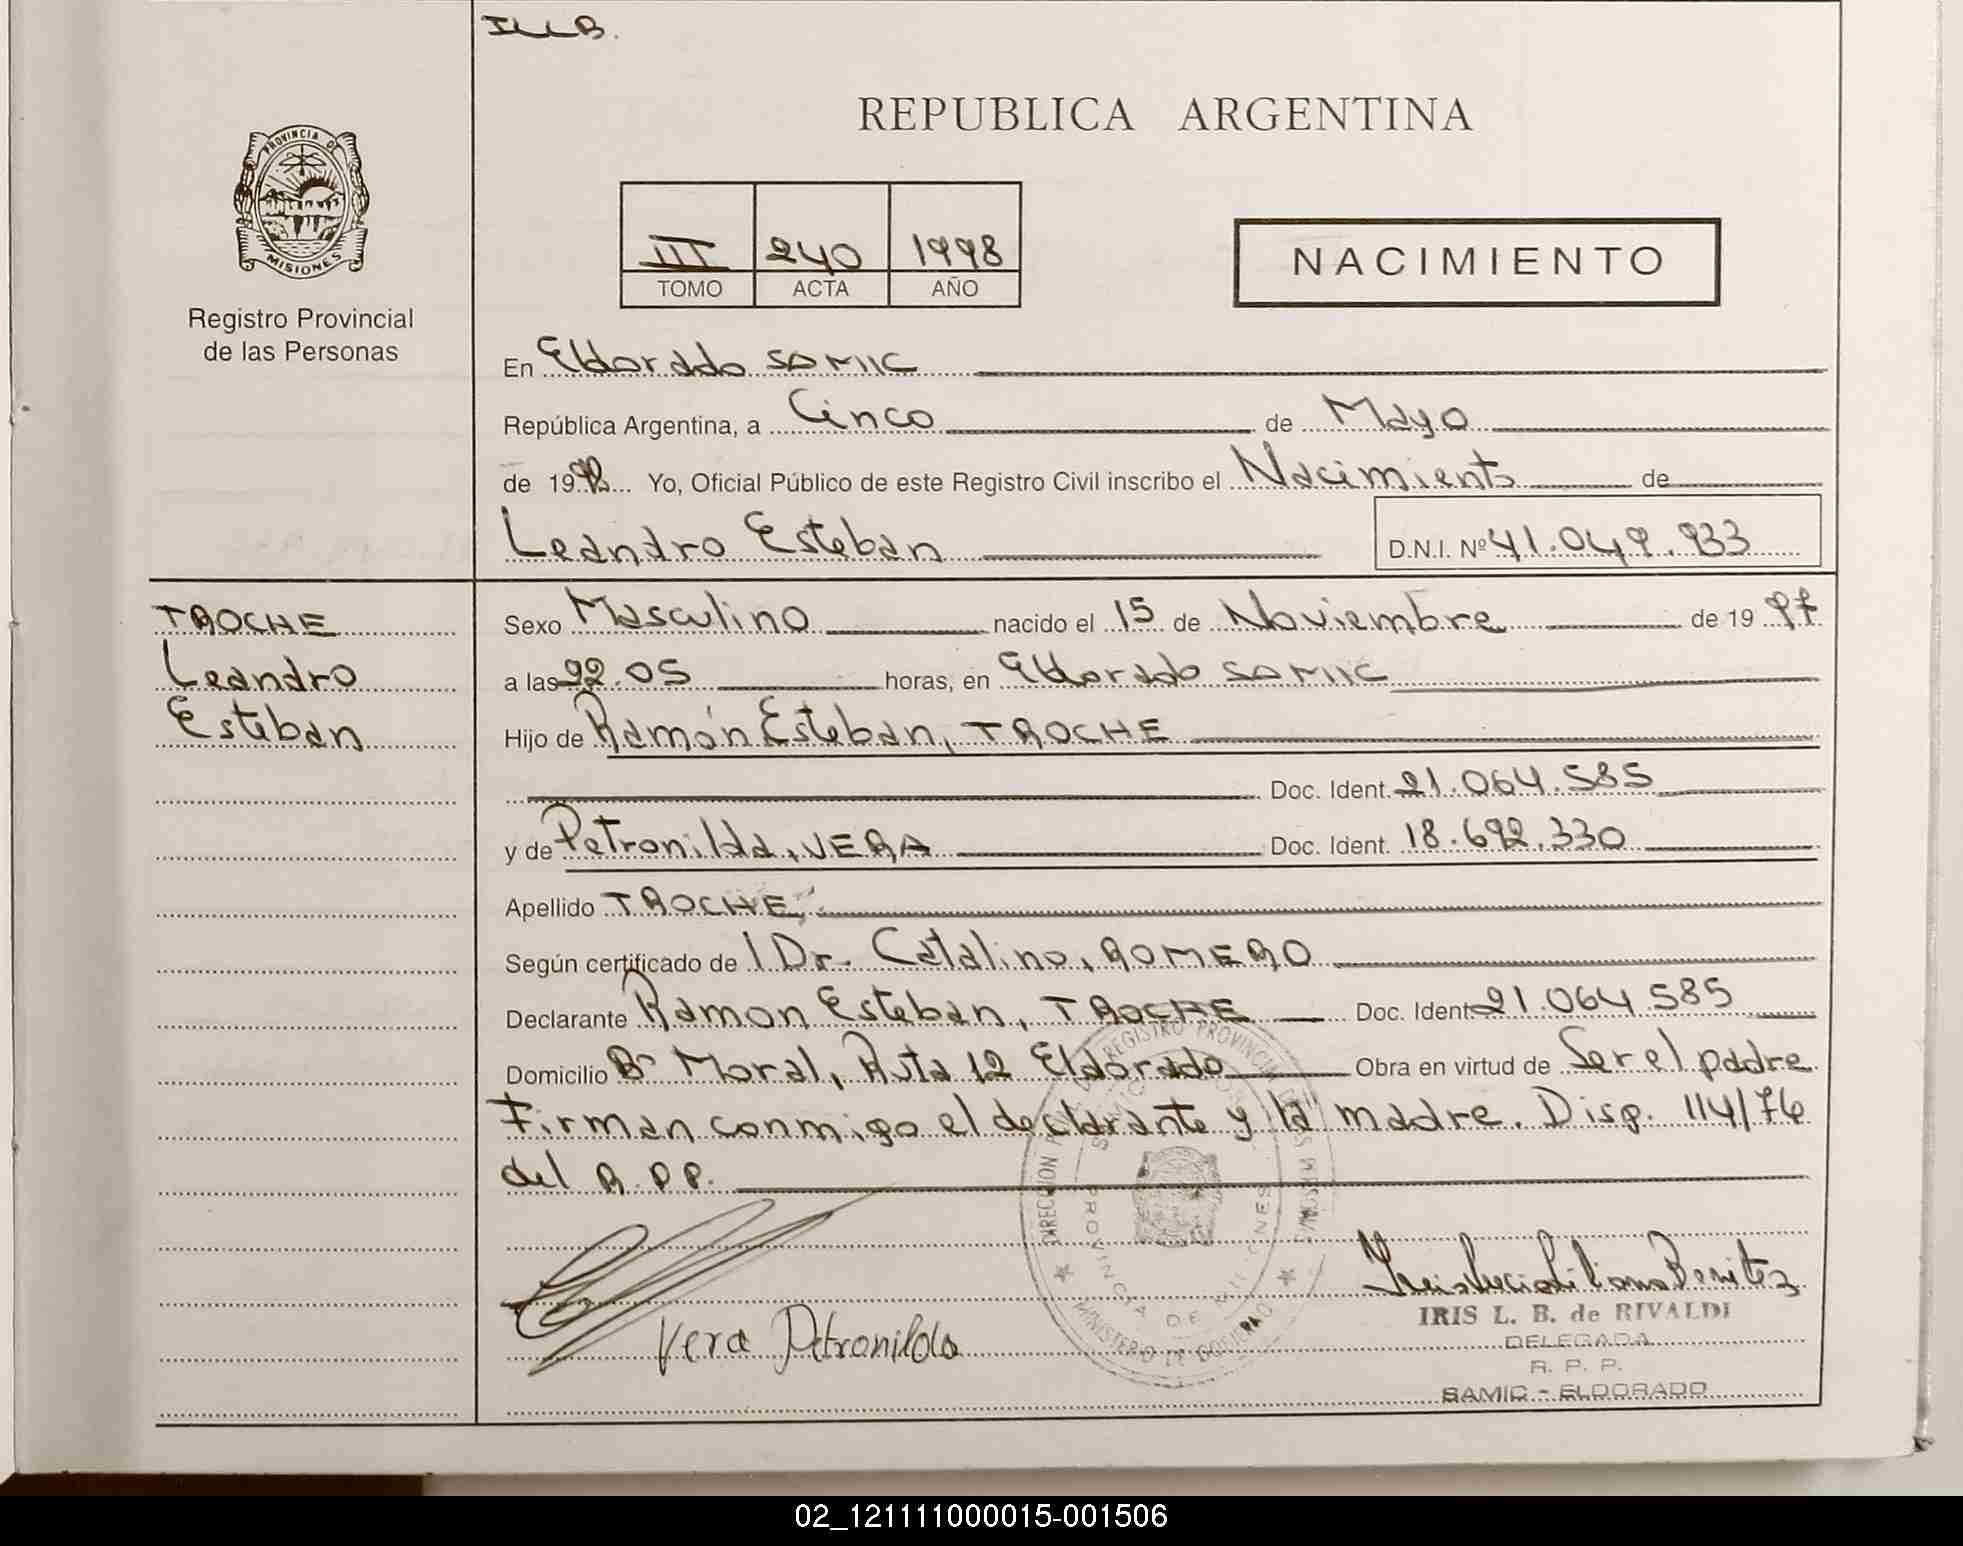 ILLB.
REPUBLICA ARGENTINA
PROVINCIA DE
MISIONES
III 240 1998
TOMO ACTA AÑO
NACIMIENTO
Registro Provincial
de las Personas
En Eldorado SAMIC
República Argentina, a Cinco de Mayo
de 1998 Yo, Oficial Público de este Registro Civil inscribo el Nacimiento de
Leandro Esteban D.N.I. Nº 41.049.933
TROCHE
Leandro
Esteban
Sexo Masculino nacido el 15 de Noviembre de 1997
a las 22.05 horas, en Eldorado SAMIC
Hijo de Ramón Esteban, TROCHE
Doc. Ident. 21.064.585
y de Petronilda, VERA Doc. Ident. 18.692.330
Apellido TROCHE
Según certificado de l Dr. Catalino, ROMERO
Declarante Ramon Esteban, TROCHE Doc. Ident 21.064.585
Domicilio Bº Moral, Ruta 12 Eldorado Obra en virtud de Ser el padre
Firman conmigo el declarante y la madre. Disp. 114/76
del R.P.P.
DIRECCION REGISTRO PROVINCIAL DE LAS PERSONAS
PROVINCIA DE MISIONES
MINISTERIO DE GOBIERNO
Vera Petronilda
Iris Lucia Liliana Benitez
IRIS L. B. de RIVALDI
DELEGADA
R. P. P.
SAMIC - ELDORADO
02_121111000015-001506